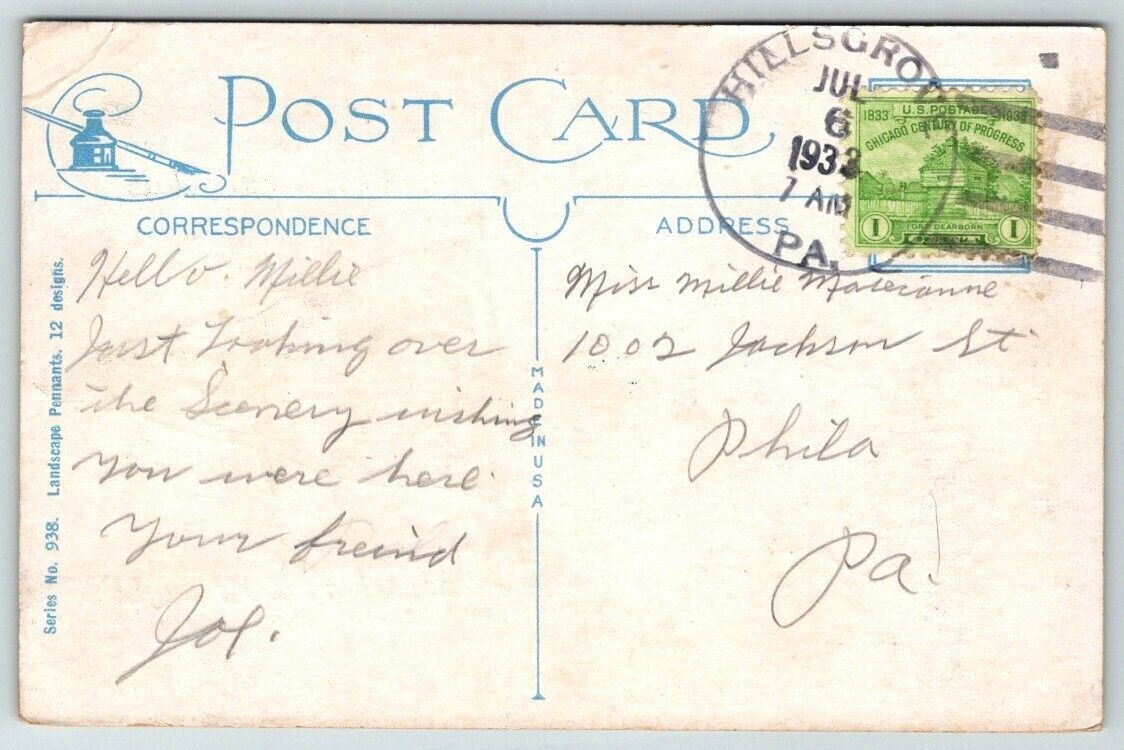 POST CARD
HILLSGRO
JUL
6
1933
7 AM
PA.
1833 U.S. POSTAGE 1933
CHICAGO CENTURY OF PROGRESS
1 FORT DEARBORN 1
CORRESPONDENCE
ADDRESS
Series No. 938. Landscape Pennants. 12 designs.
Hello Millie
Just Looking over
the Scenery wishing
you were here.
Your freind
Joe.
MADE IN USA
Miss Millie
1002 Jackson St
Phila
Pa.